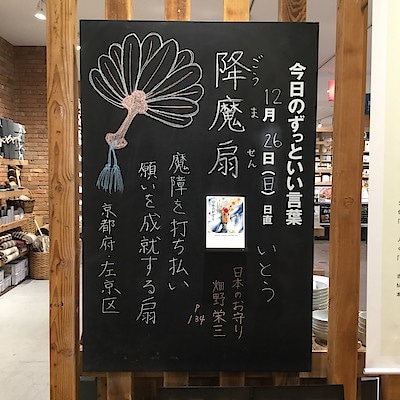 今日のずっといい言葉
12月26日(日) 日直 いとう
降魔扇
ごうません
魔障を打ち払い
願いを成就する扇
京都府・左京区
日本のお守り
畑野栄三
P134